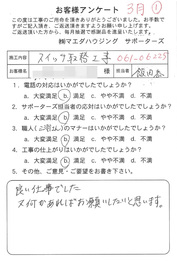 お客様アンケート
3月 ①
この度は工事のご用命を頂きありがとうございました。お手数で
すがご記入頂き、ご返送頂きますようお願い申し上げます。
ご返送頂いた方から、毎月抽選で感謝品を進呈いたします。
㈱マエダハウジング サポーターズ
工事内容 スイッチ取替工事 061-06225
お客様名 様 担当者 飯田
1. 電話の対応はいかがでしたでしょうか？
a. 大変満足 b. 満足 c. やや不満 d. 不満
2. サポーターズ担当者の応対はいかがでしたでしょうか？
a. 大変満足 b. 満足 c. やや不満 d. 不満
3. 職人のマナーはいかがでしたでしょうか？
a. 大変満足 b. 満足 c. やや不満 d. 不満
4. 工事の仕上がりはいかがでしたでしょうか？
a. 大変満足 b. 満足 c. やや不満 d. 不満
5. その他、ご意見・ご要望がありましたらご記入下さい。
良い仕事でした
又何かあればお願いしたいと思います。